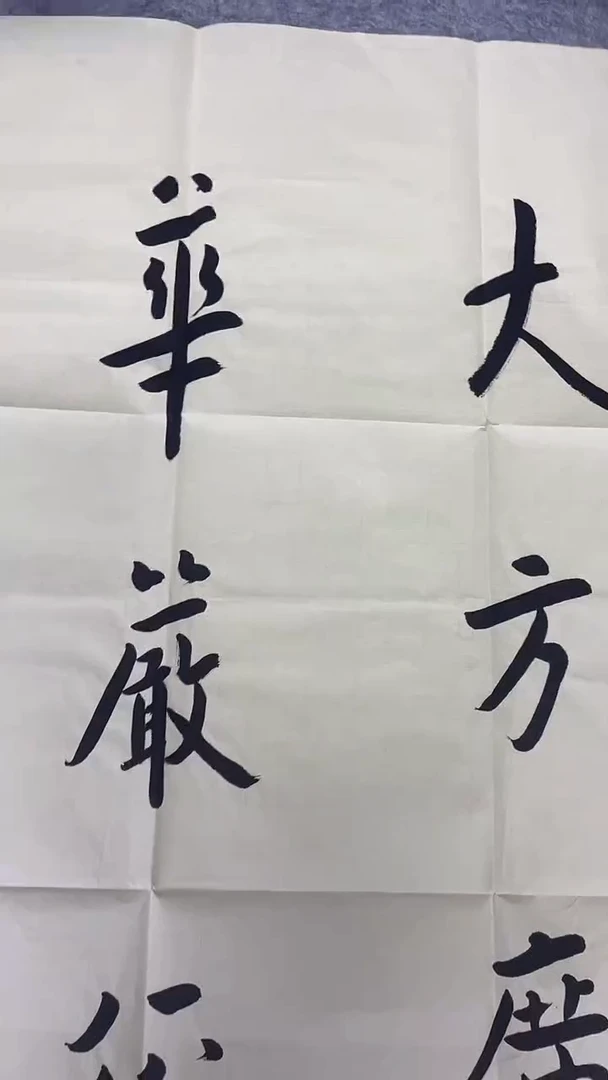 大方廣
華嚴